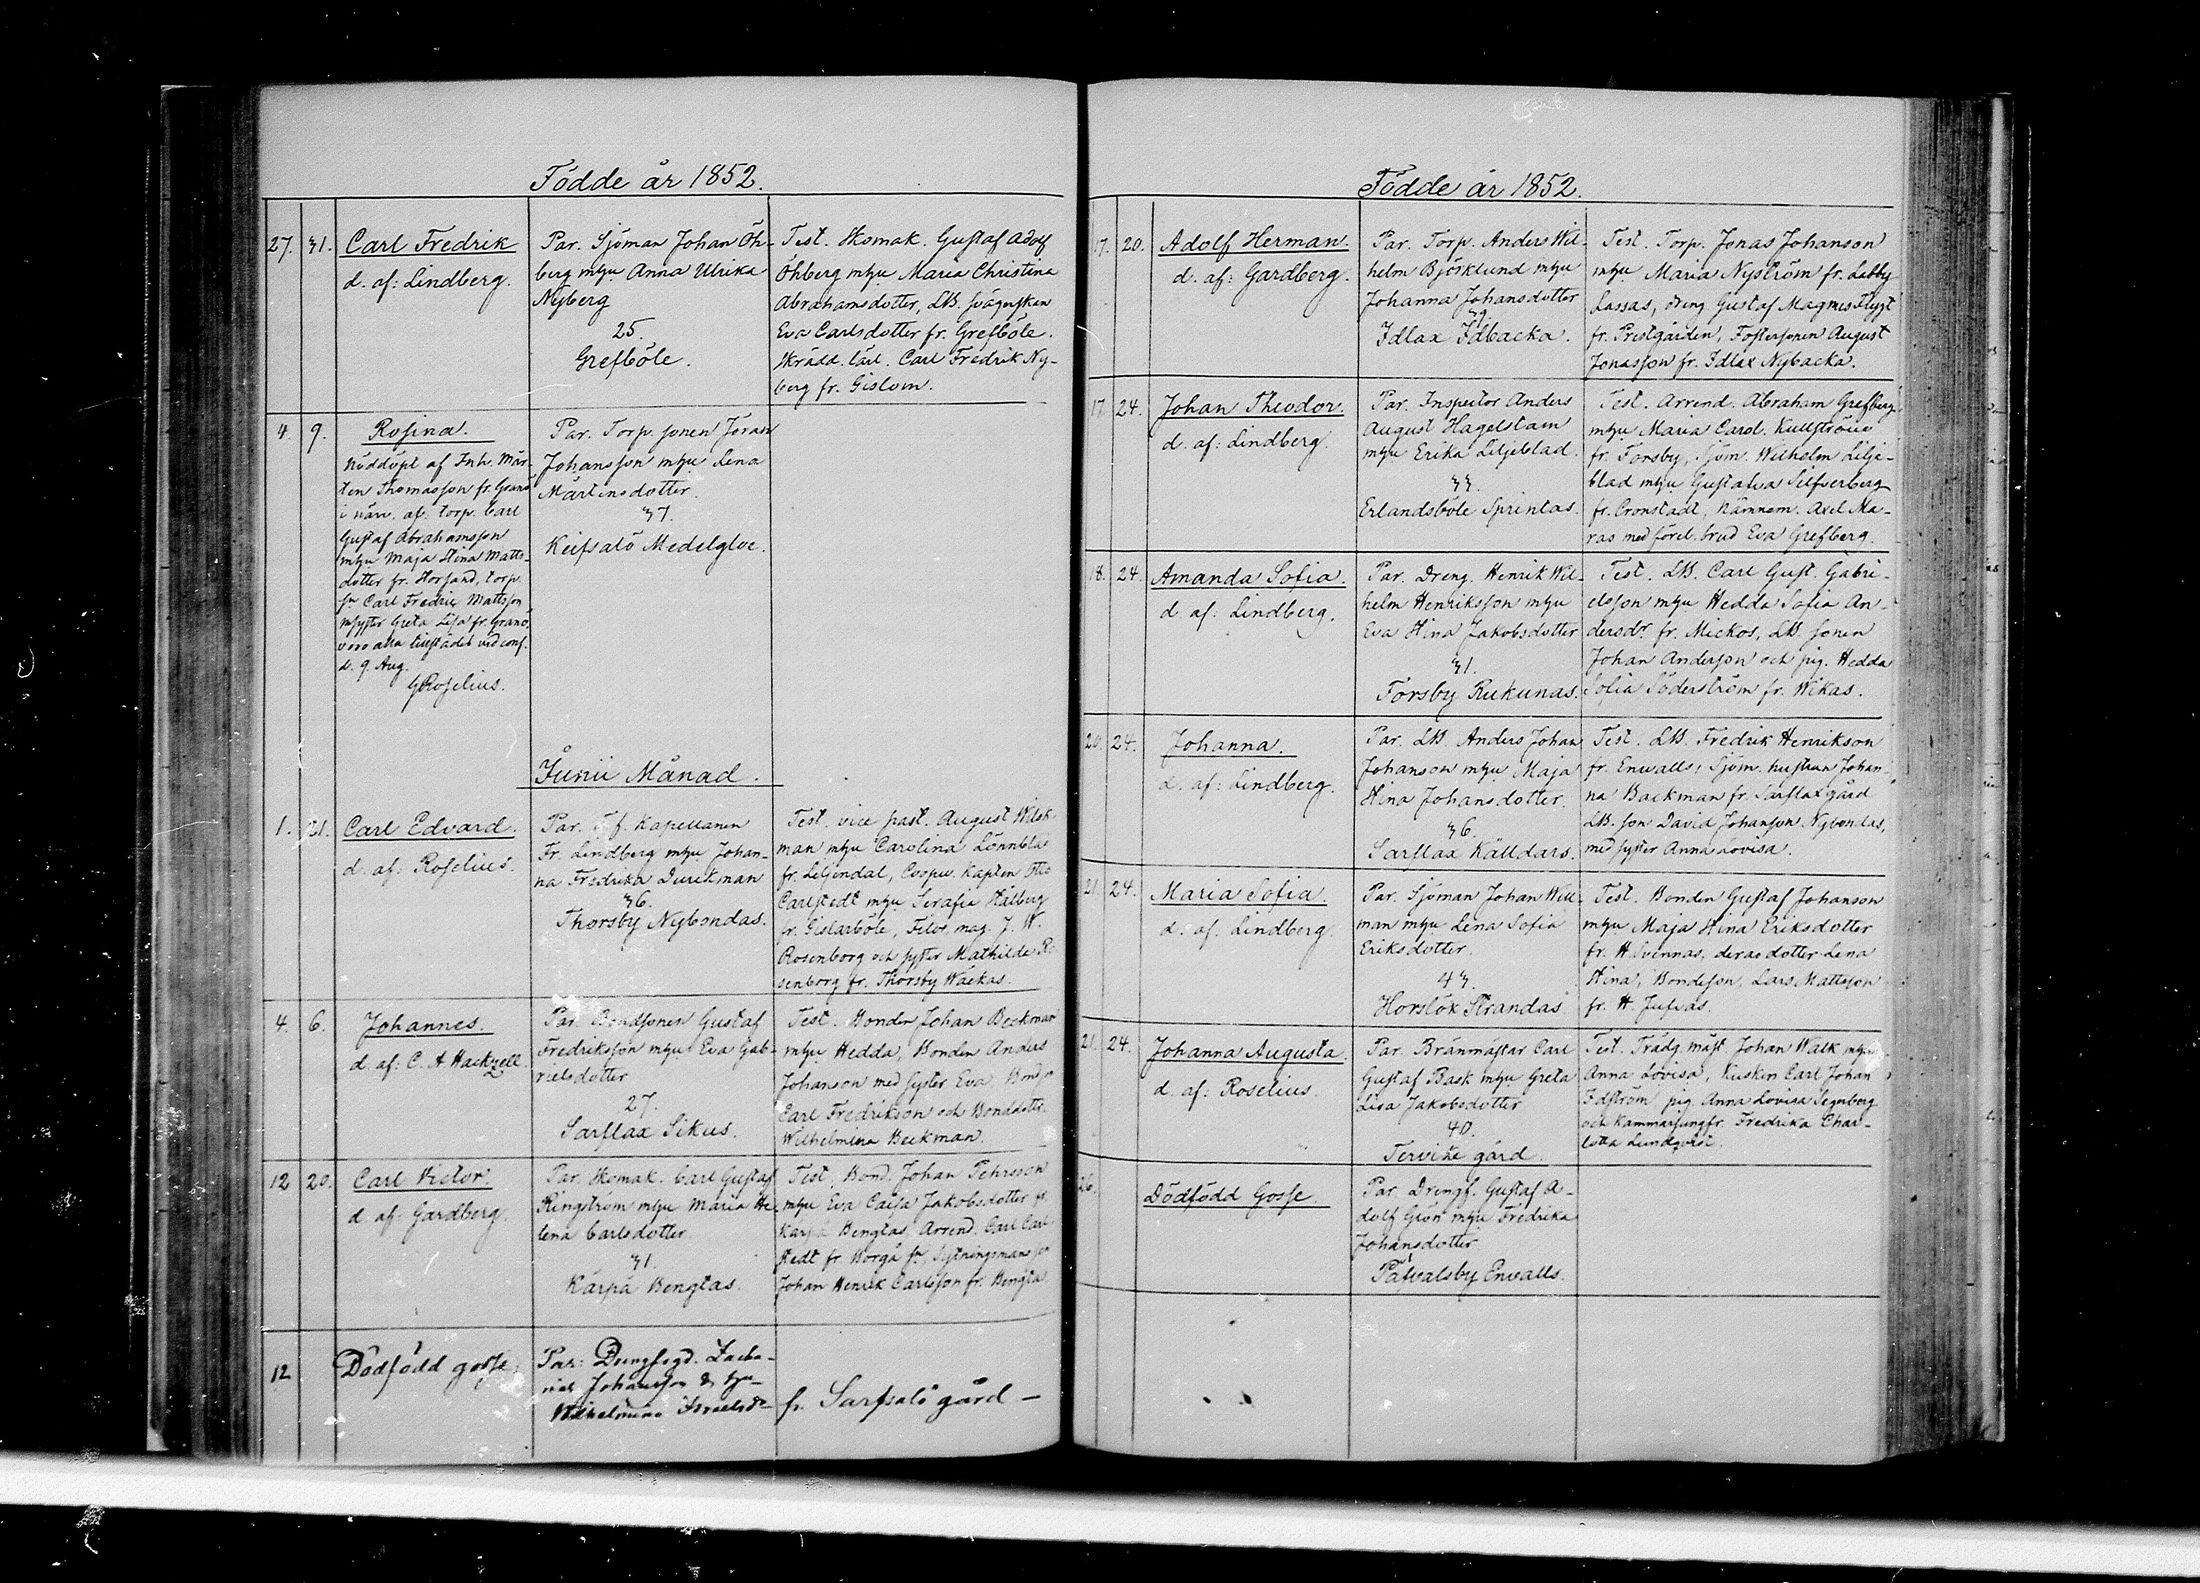 Födde år 1852.
27. 31. Carl Fredrik
d. af: Lindberg.
Par. Sjöman Johan Öh-
berg mhu Anna Ulrika
Nyberg
25.
Grefböle.
Test. Skomak. Gustaf Adolf
Öhberg mhu Maria Christina
Abrahamsdotter, LB.
Eva Carlsdotter fr. Grefböle.
Skrädd. lärl. Carl Fredrik Ny-
berg fr. Gislom.
4. 9. Rosina.
nöddöpt af Inh. Mår-
ten Thomasson fr. Granö
i närv. af: torp. Carl
Gustaf Abrahamsson
mhu Maja Stina Matts-
dotter fr. Horsand, torp.
sn Carl Fredric Mattsson
msyster Greta Lisa fr. Granö.
voro alla tillstädes vid conf.
d. 9 Aug.
GRoselius.
Par. Torp. sonen Jöran
Johansson mhu Lena
Mårtensdotter.
37.
Keifsalö Medelgloe.
Junii Månad.
1. 21. Carl Edvard.
d. af: Roselius.
Par. T.f. Kapellanen
Fr. Lindberg mhu Johan-
na Fredrika Durchman
36.
Thorsby Nybondas.
Test. vice past. August Wilsk-
man mhu Carolina Lönnblad
fr. Liljendal, Coopv. Kapten Otto
Carlstedt mhu Serafia Stålberg
fr. Gislarböle, Filos. mag. J. W.
Rosenborg och syster Mathilda Ro-
senborg fr. Thorsby Wäckas.
4. 6. Johannes.
d. af: C. A Hackzell.
Par. Bondsonen Gustaf
Fredriksson mhu Eva Gab-
rielsdotter
27.
Sarflax Sikus.
Test. Bonden Johan Beckman
mhu Hedda, Bonden Anders
Johanson med syster Eva, Bonds.
Carl Fredrikson och Bonddottr.
Wilhelmina Beckman.
12 20. Carl Victor.
d af: Gardberg.
Par. Skomak. Carl Gustaf
Ringström mhu Maria He-
lena Carlsdotter
31.
Kärpä Bengtas.
Test. Bond. Johan Pehrsson
mhu Eva Caisa Jakobsdotter fr.
Kärpä Bengtas, Arrend. Carl Carl-
stedt fr. Borgå sn, Sytningsmansson
Johan Henrik Carlsson fr. Bengtas
12 Dödfödd gosse.
Par: Drengfogd. Zacha-
rias Johansson & hu-
Wilhelmina Israelsdr
fr. Sarfsalö gård —
Födde år 1852.
17. 20. Adolf Herman.
d. af: Gardberg.
Par. Torp. Anders Wil-
helm Björklund mhu
Johanna Johansdotter
39.
Idlax Idbacka.
Test. Torp. Jonas Johanson
mhu Maria Nyström fr. Labby
Lassas, dreng Gustaf Magnus Flygt
fr. Prestgården, Fostersonen August
Jonasson fr. Idlax Nybacka.
17. 24. Johan Theodor.
d. af: Lindberg.
Par. Inspector Anders
August Hagelstam
mhu Erika Liljeblad.
33.
Erlandsböle Sprintas.
Test. Arrend. Abraham Grefberg
mhu Maria Carol. Kullström
fr. Forsby, Sjöm. Wilhelm Lilje-
blad mhu Gustafva Silfverberg
fr. Cronstadt, Nämnem. Axel Ma-
ras med förel. brud Eva Grefberg.
18. 24. Amanda Sofia.
d. af: Lindberg.
Par. Dreng. Henrik Wil-
helm Henriksson mhu
Eva Stina Jakobsdotter
31.
Forsby Rukunas.
Test. LB. Carl Gust. Gabri-
elsson mhu Hedda Sofia An-
dersdr. fr. Mickos, LB. sonen
Johan Anderson och pig. Hedda
Sofia Söderström fr. Wikas.
20. 24. Johanna.
d. af: Lindberg.
Par. LB. Anders Johan
Johanson mhu Maja
Stina Johansdotter.
36.
Sarflax Källdars.
Test. LB. Fredrik Henrikson
fr. Envalls, Sjöm. hustrun Johan-
na Backman fr. Sarflax gård
LB. son David Johanson Nybondas,
med syster Anna Lovisa.
21. 24. Maria Sofia.
d. af: Lindberg.
Par. Sjöman Johan Will-
man mhu Lena Sofia
Eriksdotter.
43.
Horslöx Strandas
Test. Bonden Gustaf Johanson
mhu Maja Stina Eriksdotter
fr. H. Svennas, deras dotter Lena
Stina, Bondeson, Lars Mattsson
fr. H.
21. 24. Johanna Augusta.
d. af: Roselius.
Par. Bränmästar Carl
Gustaf Bask mhu Greta
Lisa Jakobsdotter
40.
Tervike gård.
Test. Trädg. mäst Johan Walk mhu
Anna Lovisa, Kusken Carl Johan
Idström pig. Anna Lovisa Segerberg
och Kammarjungfr. Fredrika Char-
lotta Lundqvist.
26. Dödfödd Gosse.
Par. Drengf. Gustaf A-
dolf Grön mhu Fredrika
Johansdotter
Påfvalsby Envalls.